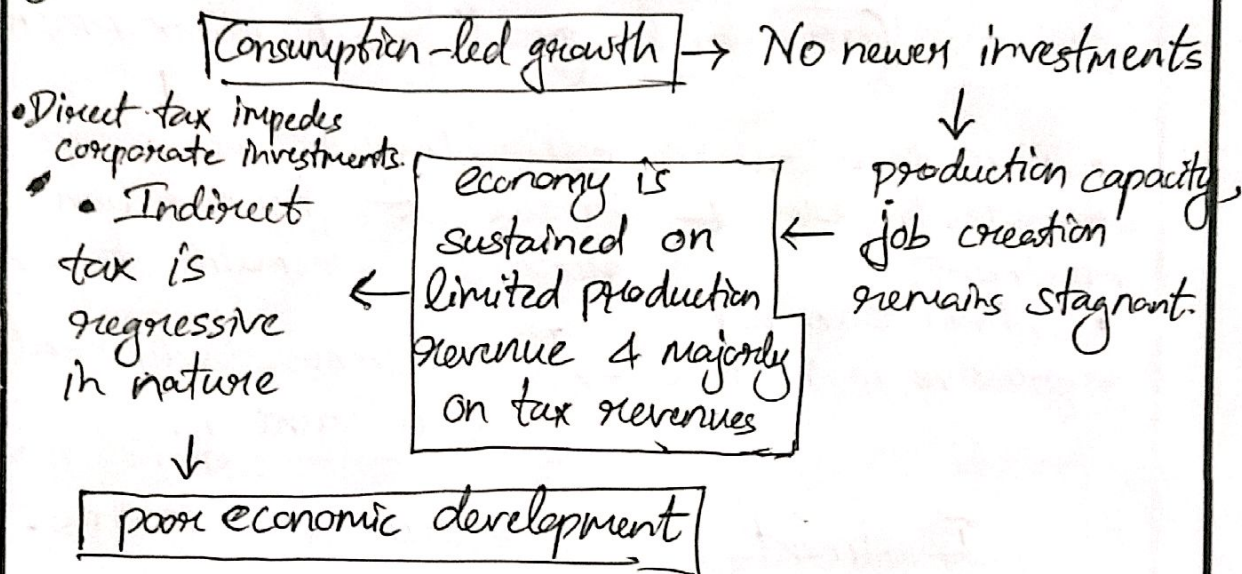 Consumption-led growth → No newer investments
↓
production capacity,
job creation
remains stagnant.
←
economy is
sustained on
limited production
revenue & majorly
on tax revenues
←
• Direct tax impedes
corporate investments.
• Indirect
tax is
regressive
in nature
↓
poor economic development